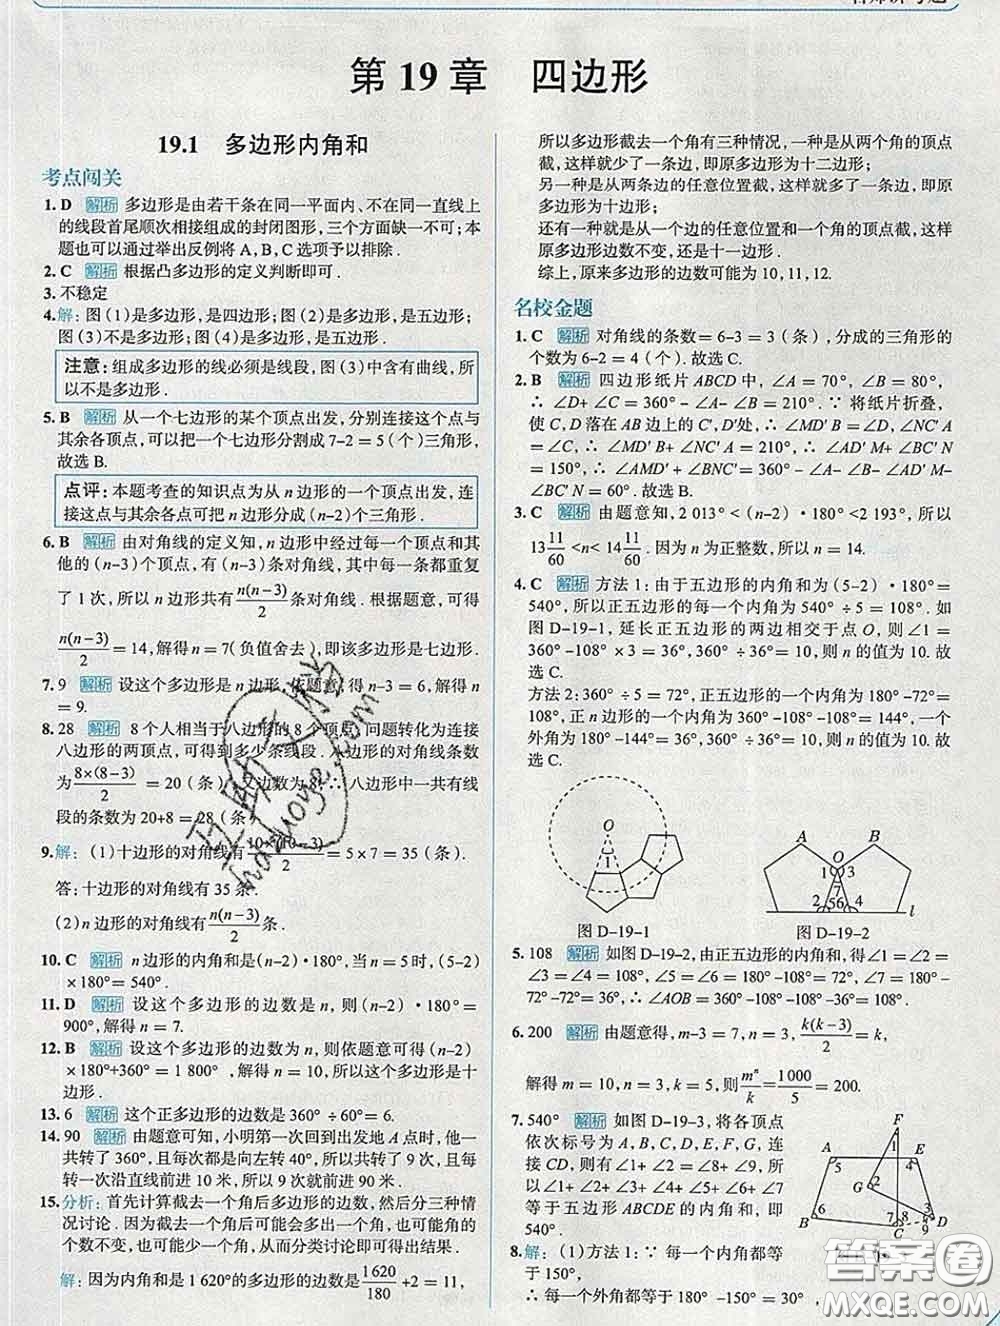 第 19 章 四边形
19.1 多边形内角和
考点闯关
1. D 解析 多边形是由若干条在同一平面内、不在同一直线上
的线段首尾顺次相接组成的封闭图形，三个方面缺一不可；本
题也可以通过举出反例将 A, B, C 选项予以排除.
2. C 解析 根据凸多边形的定义判断即可.
3. 不稳定
4. 解：图(1)是多边形，是四边形；图(2)是多边形，是五边形；
图(3)不是多边形；图(4)是多边形，是五边形.
注意：组成多边形的线必须是线段，图(3)中含有曲线，所
以不是多边形.
5. B 解析 从一个七边形的某个顶点出发，分别连接这个点与
其余各顶点，可以把一个七边形分割成 7-2=5(个)三角形，
故选 B.
点评：本题考查的知识点为从 n 边形的一个顶点出发，连
接这点与其余各点可把 n 边形分成(n-2)个三角形.
6. B 解析 由对角线的定义知，n 边形中经过每一个顶点和其
他的(n-3)个顶点，有(n-3)条对角线，其中每一条都重复
了 1 次，所以 n 边形共有 n(n-3)/2 条对角线. 根据题意，可得
n(n-3)/2 = 14，解得 n = 7(负值舍去)，即该多边形是七边形.
7. 9 解析 设这个多边形是 n 边形，依题意，得 n-3 = 6，解得 n
= 9.
8. 28 解析 8 个人相当于八边形的 8 个顶点，问题转化为连接
八边形的两顶点，可得到多少条线段. 八边形的对角线条数
为 8×(8-3)/2 = 20(条)，又边数为 8，∴ 八边形中一共有线
段的条数为 20+8 = 28(条).
9. 解：(1)十边形的对角线有 10×(10-3)/2 = 5×7 = 35(条).
答：十边形的对角线有 35 条.
(2) n 边形的对角线有 n(n-3)/2 条.
10. C 解析 n 边形的内角和是(n-2)·180°，当 n = 5 时，(5-2)
×180°= 540°.
11. D 解析 设这个多边形的边数是 n，则(n-2)·180°=
900°，解得 n = 7.
12. B 解析 设这个多边形的边数为 n，则依题意可得(n-2)
×180°+360° = 1 800°，解得 n = 10，所以这个多边形是十
边形.
13. 6 解析 这个正多边形的边数是 360° ÷60°= 6.
14. 90 解析 由题意可知，小明第一次回到出发地 A 点时，他一
共转了 360°，且每次都是向左转 40°，所以共转了 9 次，且每
转一次沿直线前进 10 米，所以 9 次就前进 90 米.
15. 分析：首先计算截去一个角后多边形的边数，然后分三种情
况讨论. 因为截去一个角后可能会多出一个角，也可能角的
个数不变，也可能少一个角，从而分类讨论即可得出结果.
解：因为内角和是 1 620°的多边形的边数是 1 620/180 +2 = 11，
所以多边形截去一个角有三种情况，一种是从两个角的顶点
截，这样就少了一条边，即原多边形为十二边形；
另一种是从两条边的任意位置截，这样就多了一条边，即原
多边形为十边形；
还有一种就是从一个边的任意位置和一个角的顶点截，这样
原多边形边数不变，还是十一边形.
综上，原来多边形的边数可能为 10, 11, 12.
名校金题
1. C 解析 对角线的条数= 6-3 = 3(条)，分成的三角形的
个数为 6-2 = 4(个). 故选 C.
2. B 解析 四边形纸片 ABCD 中，∠A = 70°，∠B = 80°，
∴ ∠D+ ∠C = 360°-∠A- ∠B = 210°. ∵ 将纸片折叠，
使 C, D 落在 AB 边上的 C′, D′处，∴ ∠MD′ B = ∠D, ∠NC′ A
= ∠C, ∴ ∠MD′ B+ ∠NC′ A = 210°, ∴ ∠AD′ M+∠BC′ N
= 150°, ∴ ∠AMD′ + ∠BNC′ = 360° - ∠A- ∠B- ∠AD′ M-
∠BC′ N = 60°. 故选 B.
3. C 解析 由题意知，2 013° < (n-2)·180° <2 193°，所以
13 11/60 <n< 14 11/60. 因为 n 为正整数，所以 n = 14.
4. C 解析 方法 1：由于五边形的内角和为(5-2)·180°=
540°，所以正五边形的每一个内角为 540° ÷5 = 108°. 如
图 D-19-1，延长正五边形的两边相交于点 O，则∠1 =
360°-108° ×3 = 36°, 360° ÷36° = 10，则 n 的值为 10. 故
选 C.
方法 2：360° ÷5 = 72°，正五边形的一个内角为 180°-72°=
108°，正 n 边形的一个内角为 360°-108°-108° = 144°，一个
外角为 180°-144°= 36°, 360°÷36° = 10，则 n 的值为 10. 故
选 C.
O
1
图 D-19-1
A B
O
1 3
7
2 5 6 4 l
图 D-19-2
5. 108 解析 如图 D-19-2，由正五边形的内角和，得∠1 = ∠2
= ∠3 = ∠4 = 108°, ∠5 = ∠6 = 180°-108°= 72°, ∠7 = 180°
-72°-72°= 36°, ∴ ∠AOB = 360°-108°-108°-36°= 108°.
6. 200 解析 由题意得，m-3 = 7, n = 3, k(k-3)/2 = k,
解得 m = 10, n = 3, k = 5，则 mⁿ/k = 1 000/5 = 200.
7. 540° 解析 如图 D-19-3，将各顶点
依次标号为 A, B, C, D, E, F, G，连
接 CD，则有∠1+ ∠2 = ∠8+ ∠9，所
以∠1+ ∠2+ ∠3+ ∠4+ ∠5+ ∠6+ ∠7
等于五边形 ABCDE 的内角和，即
540°.
F
A E
5 4
G 2
B 6 7 8 3 D
C
8. 解：(1)方法 1：∵ 每一个内角都等
于 150°,
∴ 每一个外角都等于 180° -150° = 30°,
答案圈
MXQE.COM